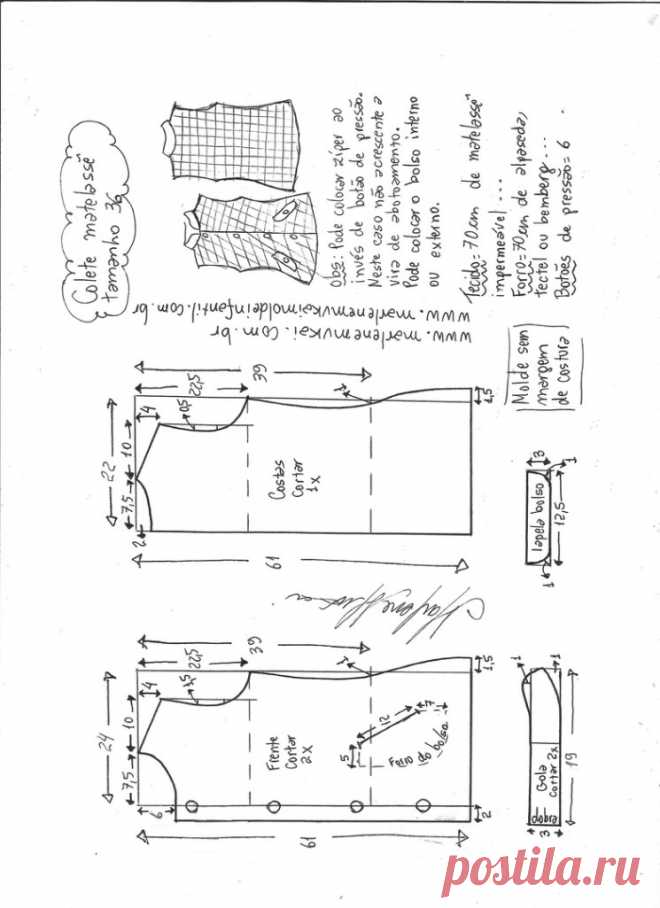 Colete matelassê
tamanho 36
obs: Pode colocar zíper ao
invés de botão de pressão.
Neste caso não acrescente a
vira de abotoamento.
Pode colocar o bolso interno
ou externo.
Tecido=70cm de "matelasse"
impermeável ...
Forro=70cm de alpaseda,
tectel ou bemberg...
Botões de pressão=6
www.marlenemukaimoldeinfantil.com.br
www.marlenemukai.com.br
Molde sem
margem
de costura
39
22,5
4
0,5
1
1,5
22
10
7,5
2
Costas
Cortar
1x
61
3
1
lapela bolso
12,5
1
39
22,5
4
1,5
1
1,5
24
10
7,5
6
12
7
5
Forro do bolso
Frente
Cortar
2x
2
61
1
1
Gola
cortar 2x
dobra
3
19
postila.ru